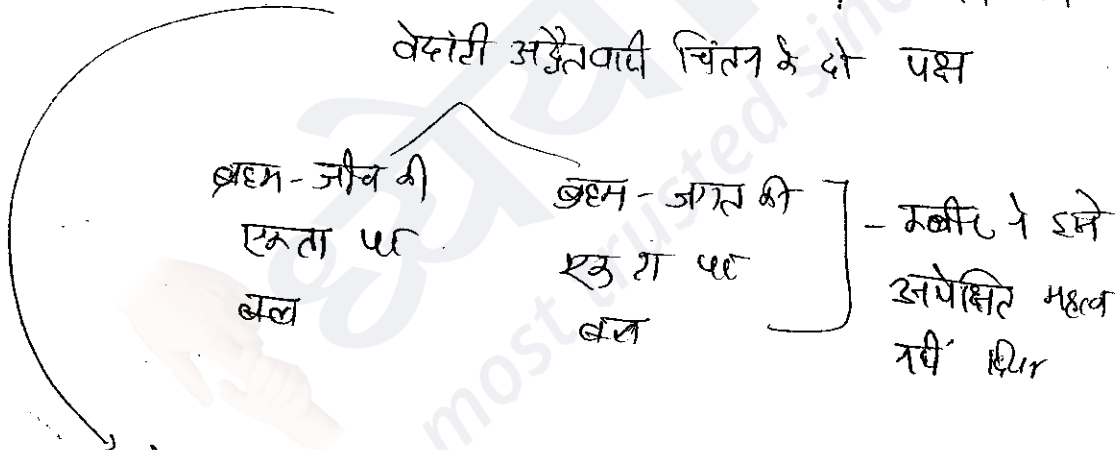 वेदांती अद्वैतवादी चिंतन के दो पक्ष
ब्रह्म - जीव की
एकता पर
बल
ब्रह्म - जगत की
एकता पर
बल
- कबीर ने इसे
अपेक्षित महत्व
नहीं दिया
most trusted since